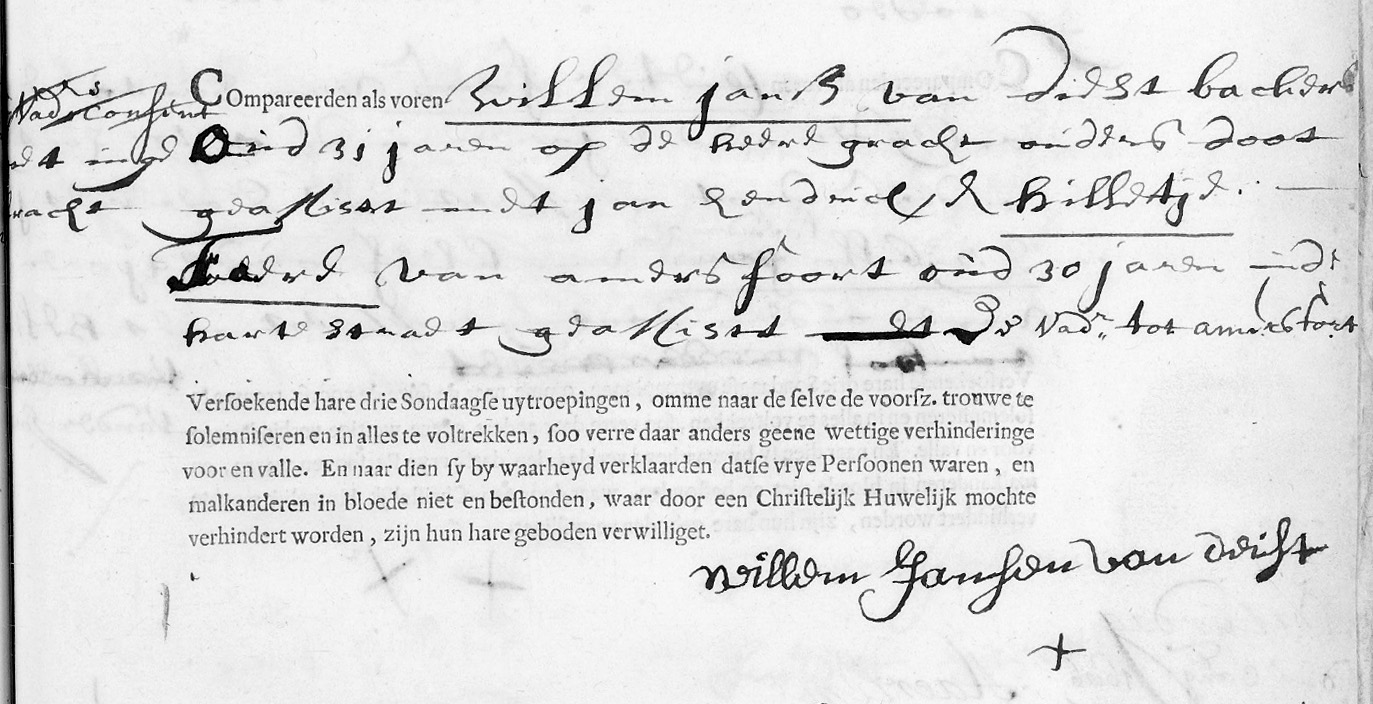 Vad.rs Consent
Compareerden als voren Willem jans van diest backer
oud 31 jaren op de heere gracht ouders doot
racht geassisst met jan hendricks & hilletje
van amersfoort oud 30 jaren inde
harte straet geassisst de Vadr. tot amersfort
Versoekende hare drie Sondaagse uytroepingen, omme naar de selve de voorsz. trouwe te
solemniseren en in alles te voltrekken, soo verre daar anders geene wettige verhinderinge
voor en valle. En naar dien sy by waarheyd verklaarden datse vrye Persoonen waren, en
malkanderen in bloede niet en bestonden, waar door een Christelijk Huwelijk mochte
verhindert worden, zijn hun hare geboden verwilliget.
willem Jansen van deist
+